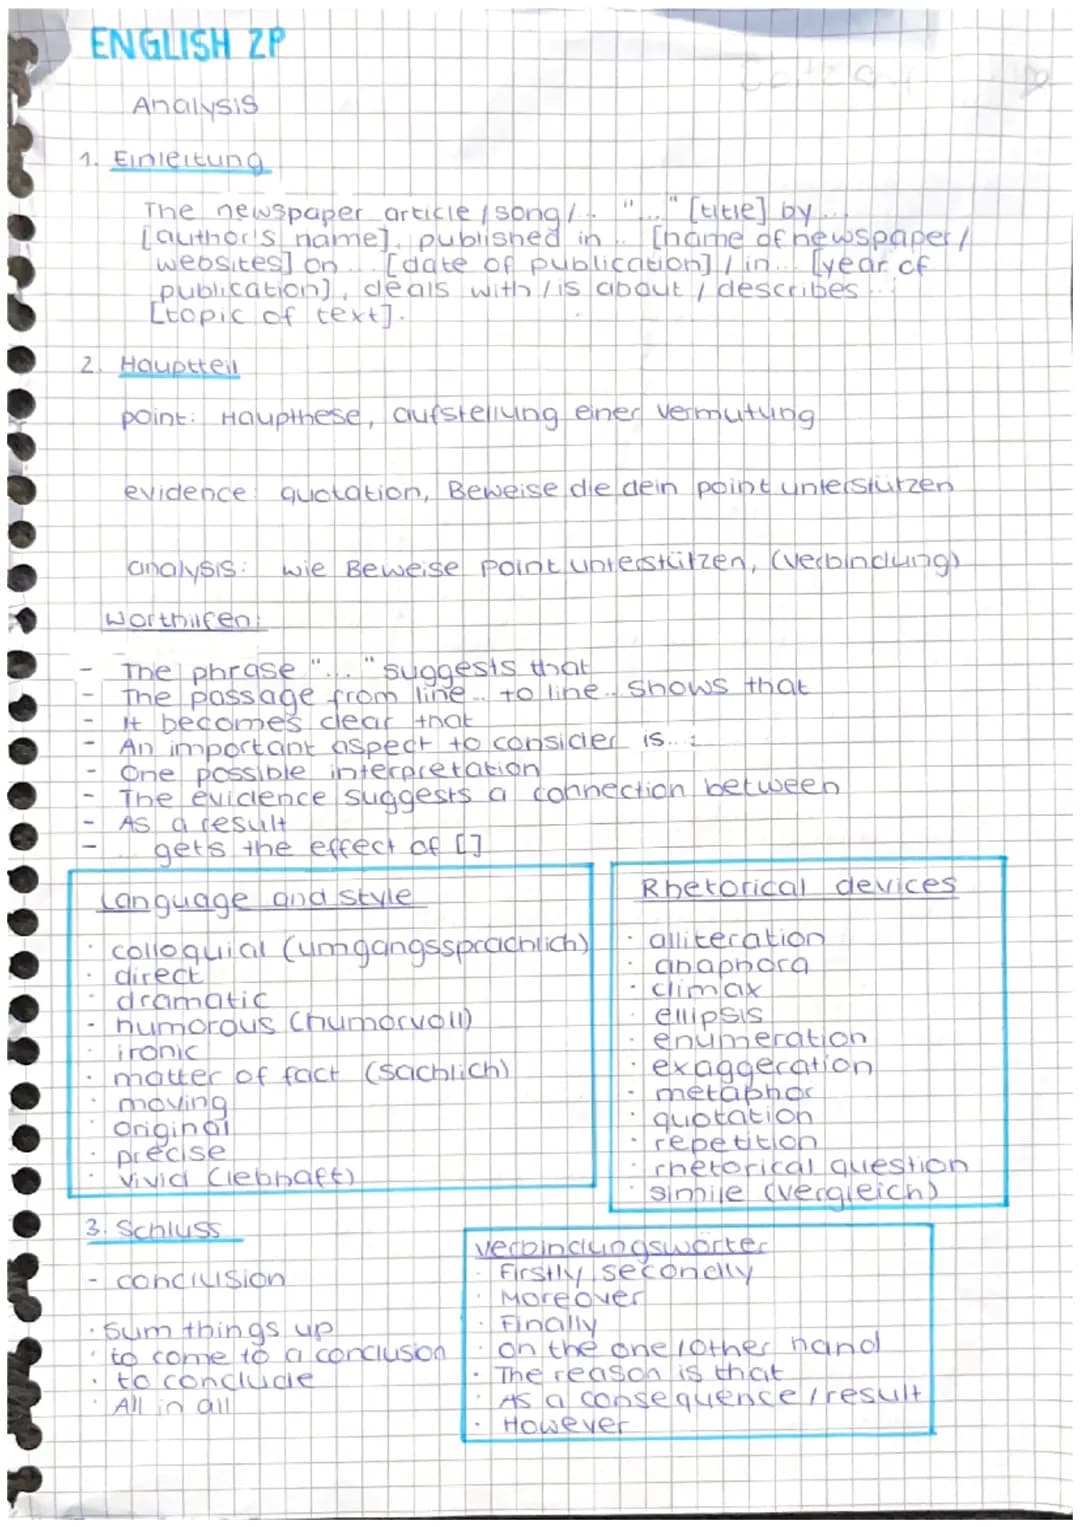 ENGLISH 2P
Analysis
1. Einleitung
The newspaper article / song / .. "..." [title] by...
[author's name], published in .. [name of newspaper /
websites] on ... [date of publication] / in... [year of
publication], deals with / is about / describes ...
[topic of text].
2. Hauptteil
point: Haupthese, aufstellung einer Vermutung
evidence: quotation, Beweise die dein point unterstützen
analysis: wie Beweise point unterstützen, (Verbindung)
Worthilfen:
- The phrase "..." suggests that
- The passage from line .. to line .. shows that
- It becomes clear that
- An important aspect to consider is...:
- One possible interpretation
- The evidence suggests a connection between
- As a result
- ... gets the effect of []
Language and style
· colloquial (umgangssprachlich)
· direct
· dramatic
· humorous (humorvoll)
· ironic
· matter of fact (sachlich)
· moving
· original
· precise
· vivid (lebhaft)
Rhetorical devices
· alliteration
· anaphora
· climax
· ellipsis
· enumeration
· exaggeration
· metaphor
· quotation
· repetition
· rhetorical question
· simile (vergleich)
3. Schluss
- conclusion
· sum things up
· to come to a conclusion
· to conclude
· All in all
Verbindungswörter
· Firstly, secondly
· Moreover
· Finally
· on the one / other hand
· The reason is that
· As a consequence / result
· However